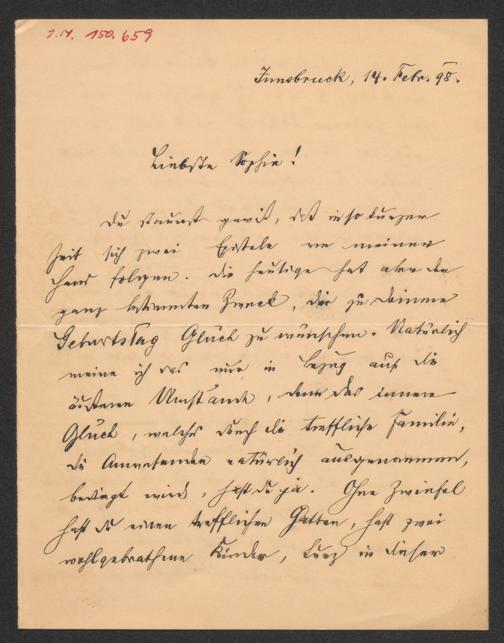 I.N. 150.659
Innsbruck, 14. Febr. 98.
Liebste Sophie!
Du staunst gewiß, daß in so kurzer
Zeit sich zwei Episteln von meiner
Hand folgen. Die heutige hat aber den
ganz bestimmten Zweck, dir zu deinem
Geburtstag Glück zu wünschen. Natürlich
meine ich das nur in bezug auf die
äußeren Umstände, denn das innere
Glück, welches durch die treffliche Familie,
die Anwesenden natürlich ausgenommen,
bedingt wird, hast du ja. Ohne Zweifel
hast du einen trefflichen Gatten, hast zwei
wohlgerathene Kinder, kurz in dieser